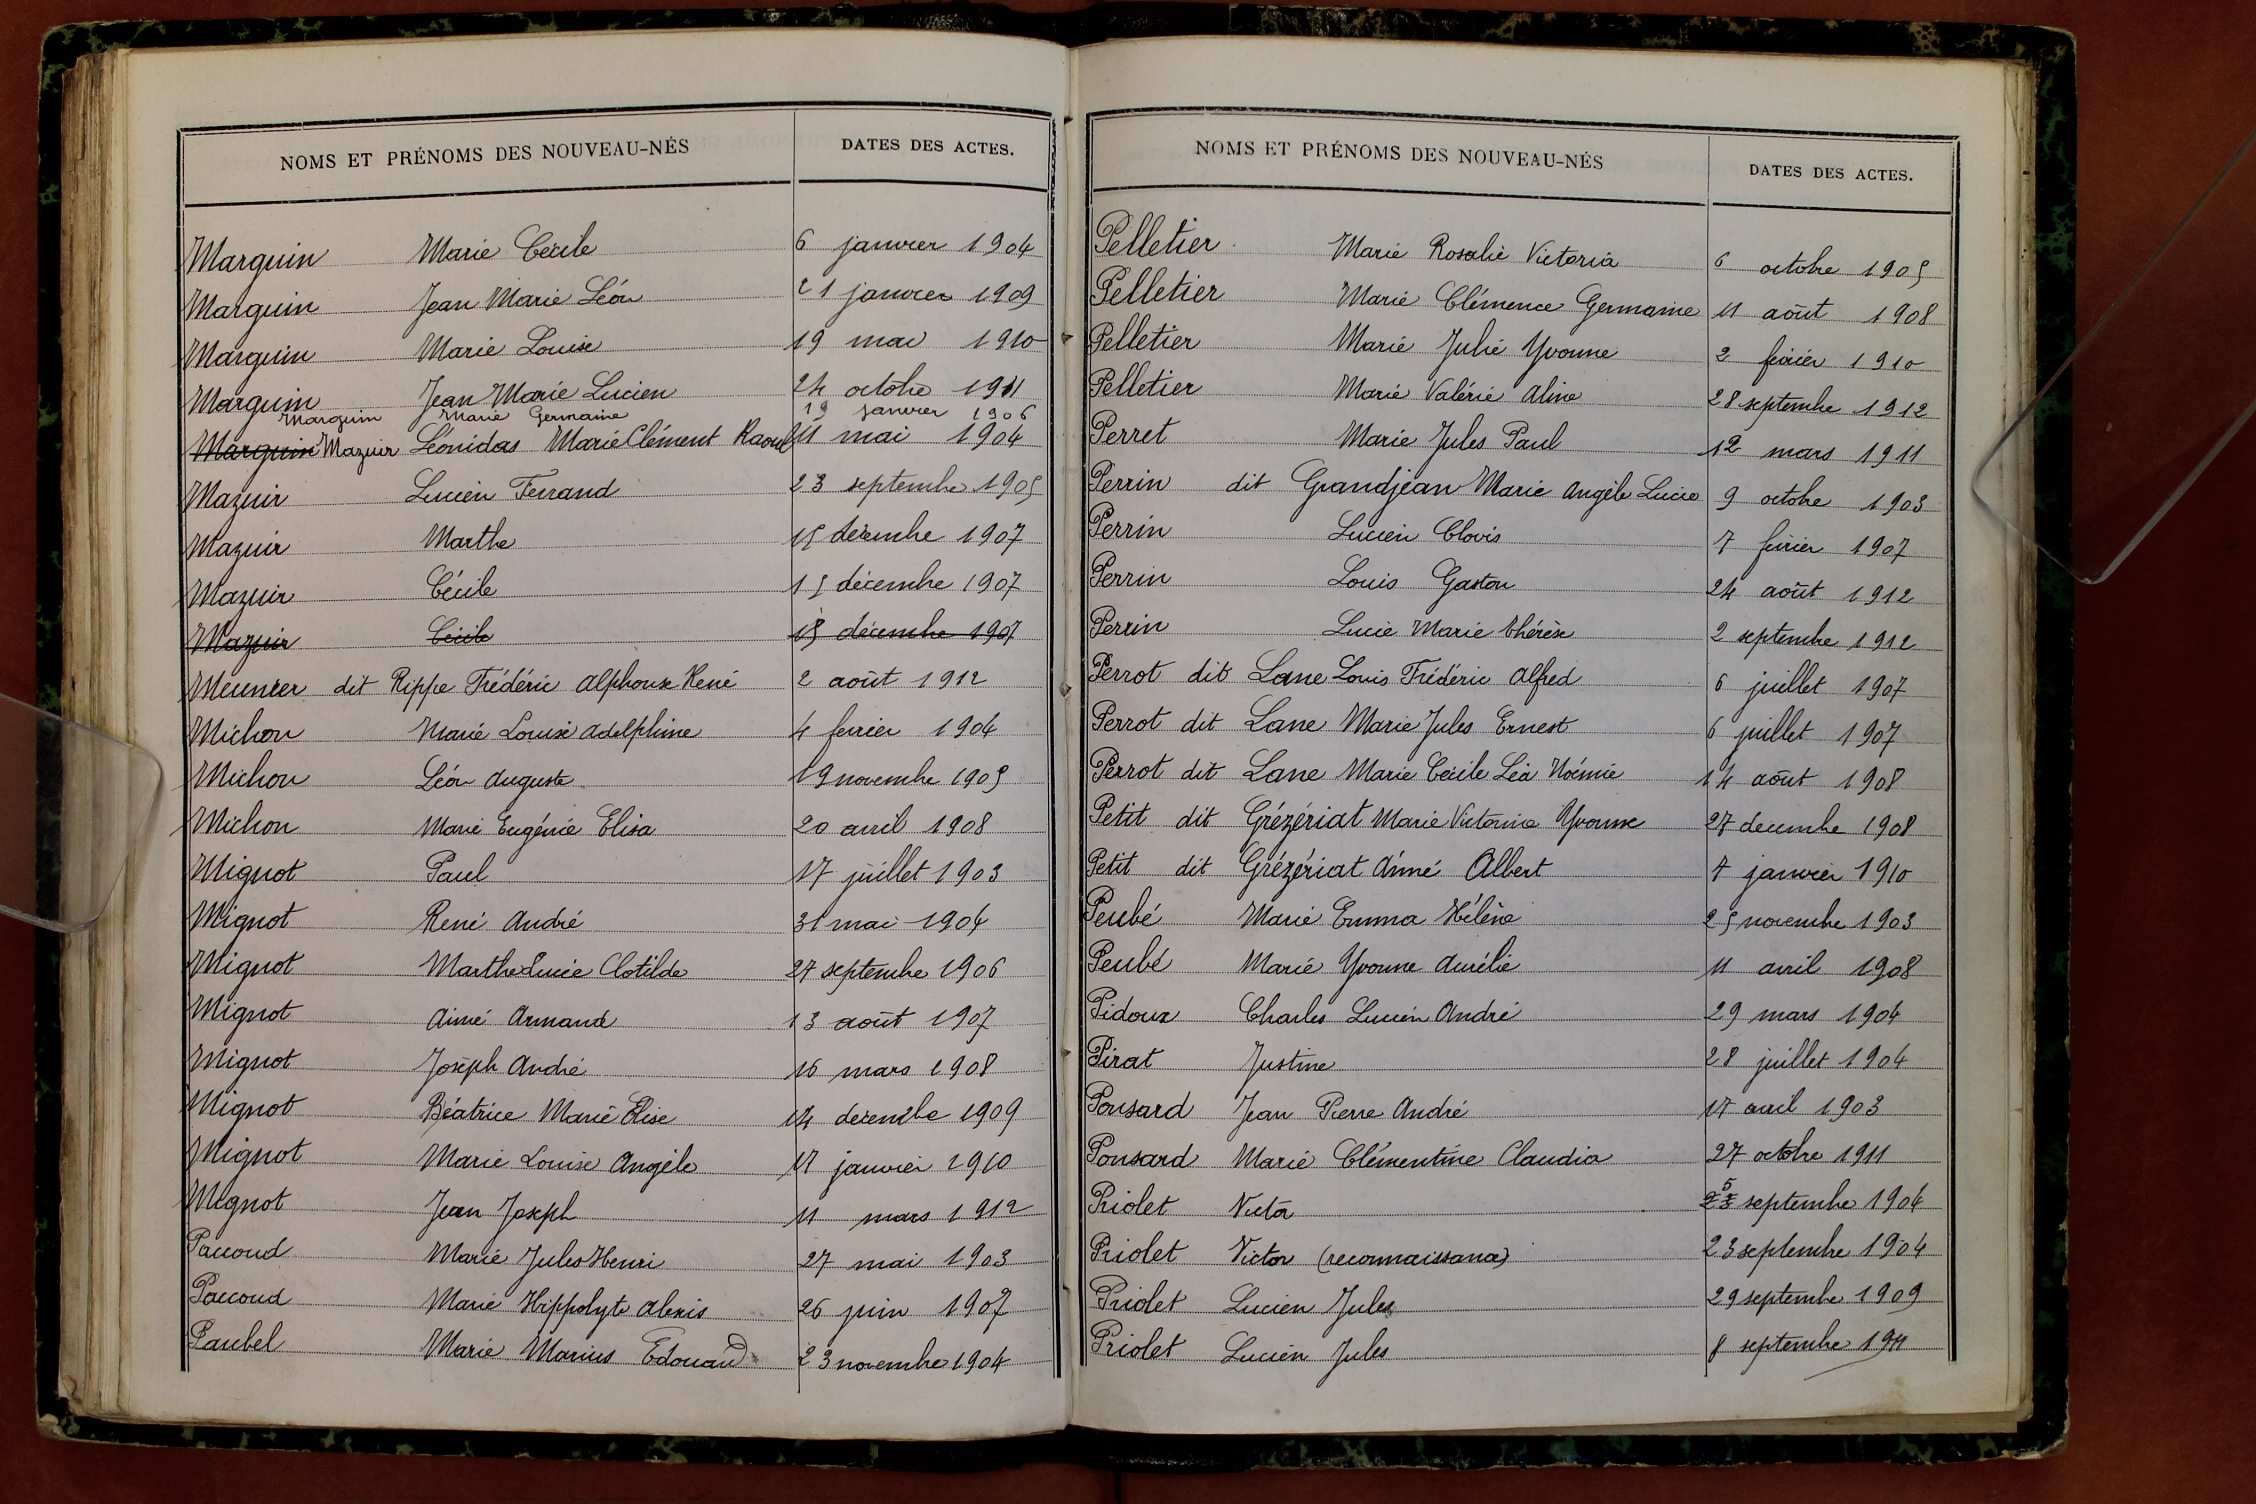 NOMS ET PRÉNOMS DES NOUVEAU-NÉS DATES DES ACTES.
Marguin Marie Cécile 6 janvier 1904
Marguin Jean Marie Léon 21 janvier 1909
Marguin Marie Louise 19 mai 1910
Marguin Jean Marie Lucien 24 octobre 1911
Marguin Marie Germaine 19 janvier 1906
Marguin Mazuir Léonidas Marie Clément Raoul 11 mai 1904
Mazuir Lucien Ferrand 23 septembre 1905
Mazuir Marthe 15 décembre 1907
Mazuir Cécile 15 décembre 1907
Mazuir Cécile 15 décembre 1907
Meunier dit Rippe Frédéric Alphonse René 2 août 1912
Michon Marie Louise Adelphine 4 fevrier 1904
Michon Léon Auguste 19 novembre 1905
Michon Marie Eugénie Elisa 20 avril 1908
Mignot Paul 17 juillet 1903
Mignot René André 31 mai 1904
Mignot Marthe Lucie Clotilde 27 septembre 1906
Mignot Aimé Armand 13 août 1907
Mignot Joseph André 16 mars 1908
Mignot Béatrice Marie Elise 14 decembre 1909
Mignot Marie Louise Angèle 17 janvier 1910
Mignot Jean Joseph 11 mars 1912
Paccoud Marie Jules Henri 27 mai 1903
Paccoud Marie Hippolyte Alexis 26 juin 1907
Paubel Marie Marius Edouard 23 novembre 1904
NOMS ET PRÉNOMS DES NOUVEAU-NÉS DATES DES ACTES.
Pelletier Marie Rosalie Victoria 6 octobre 1905
Pelletier Marie Clémence Germaine 11 août 1908
Pelletier Marie Julie Yvonne 2 février 1910
Pelletier Marie Valérie Aline 28 septembre 1912
Perret Marie Jules Paul 12 mars 1911
Perrin dit Grandjean Marie Angèle Lucie 9 octobre 1903
Perrin Lucien Clovis 7 février 1907
Perrin Louis Gaston 24 août 1912
Perrin Lucie Marie Thérèse 2 septembre 1912
Perrot dit Lane Louis Frédéric Alfred 6 juillet 1907
Perrot dit Lane Marie Jules Ernest 6 juillet 1907
Perrot dit Lane Marie Cécile Léa Noémie 14 août 1908
Petit dit Grézériat Marie Victorine Yvonne 27 decembre 1908
Petit dit Grézériat Aimé Albert 7 janvier 1910
Peubé Marie Emma Hélène 25 novembre 1903
Peubé Marie Yvonne Aurélie 11 avril 1908
Pidoux Charles Lucien André 29 mars 1904
Pirat Justine 28 juillet 1904
Ponsard Jean Pierre André 17 avril 1903
Ponsard Marie Clémentine Claudia 27 octobre 1911
Priolet Victor 5 septembre 1904
Priolet Victor (reconnaissance) 23 septembre 1904
Priolet Lucien Jules 29 septembre 1909
Priolet Lucien Jules 8 septembre 1911